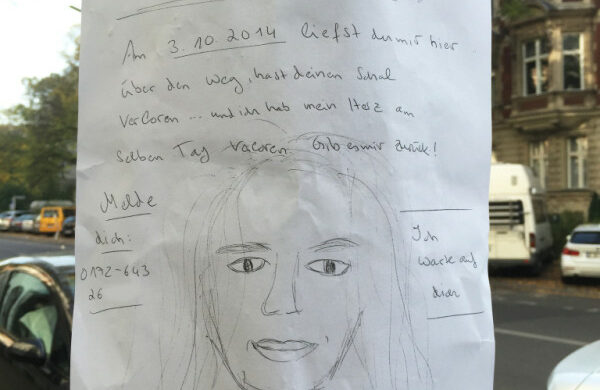 Am 3.10.2014 liefst du mir hier
über den Weg, hast deinen Schal
verloren ... und ich hab mein Herz am
selben Tag verloren Gib es mir zurück!
Melde
dich:
0172-643
26
Ich
warte auf
dich